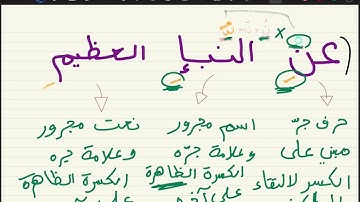 (عن النبإ العظيم
حرف جرّ
مبني على
الكسر لالتقاء
اسم مجرور
وعلامة جرّه
الكسرة الظاهرة
نعت مجرور
وعلامة جره
الكسرة الظاهرة